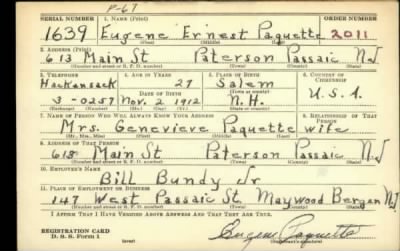 P-67
SERIAL NUMBER 1. NAME (Print) ORDER NUMBER
1639 Eugene Ernest Paquette 2011
(First) (Middle) (Last)
2. ADDRESS (Print)
613 Main St Paterson Passaic N.J
(Number and street or R. F. D. number) (Town) (County) (State)
3. TELEPHONE 4. AGE IN YEARS 5. PLACE OF BIRTH 6. COUNTRY OF CITIZENSHIP
Hackensack 27 Salem
DATE OF BIRTH
3-0257 Nov. 2 1912 N.H. U.S.A.
(Exchange) (Number) (Mo.) (Day) (Yr.) (State or county)
7. NAME OF PERSON WHO WILL ALWAYS KNOW YOUR ADDRESS 8. RELATIONSHIP OF THAT PERSON
Mrs. Genevieve Paquette wife
(Mr., Mrs., Miss) (First) (Middle) (Last)
9. ADDRESS OF THAT PERSON
613 Main St Paterson Passaic N.J
(Number and street or R. F. D. number) (Town) (County) (State)
10. EMPLOYER'S NAME
Bill Bundy Jr
11. PLACE OF EMPLOYMENT OR BUSINESS
147 West Passaic St Maywood Bergen N.J
(Number and street or R. F. D. number) (Town) (County) (State)
I AFFIRM THAT I HAVE VERIFIED ABOVE ANSWERS AND THAT THEY ARE TRUE.
REGISTRATION CARD
D. S. S. Form 1 (over) Eugene Paquette
(Registrant's signature)